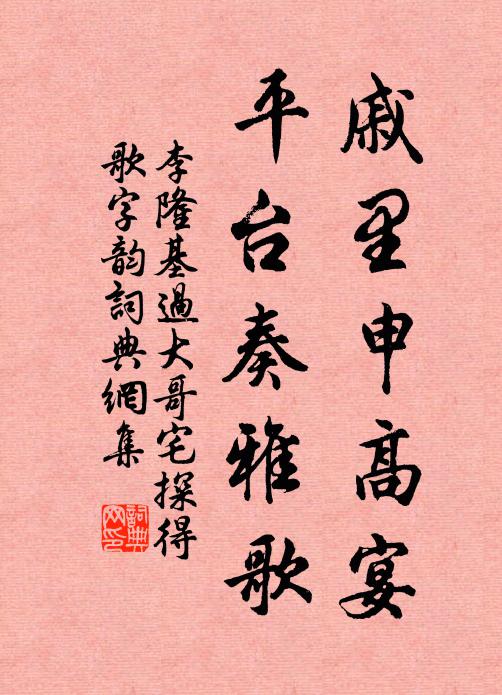 戚里申高宴
平台奏雅歌
李隆基過大哥宅探得
歌字韵詞典網集
詞典网印